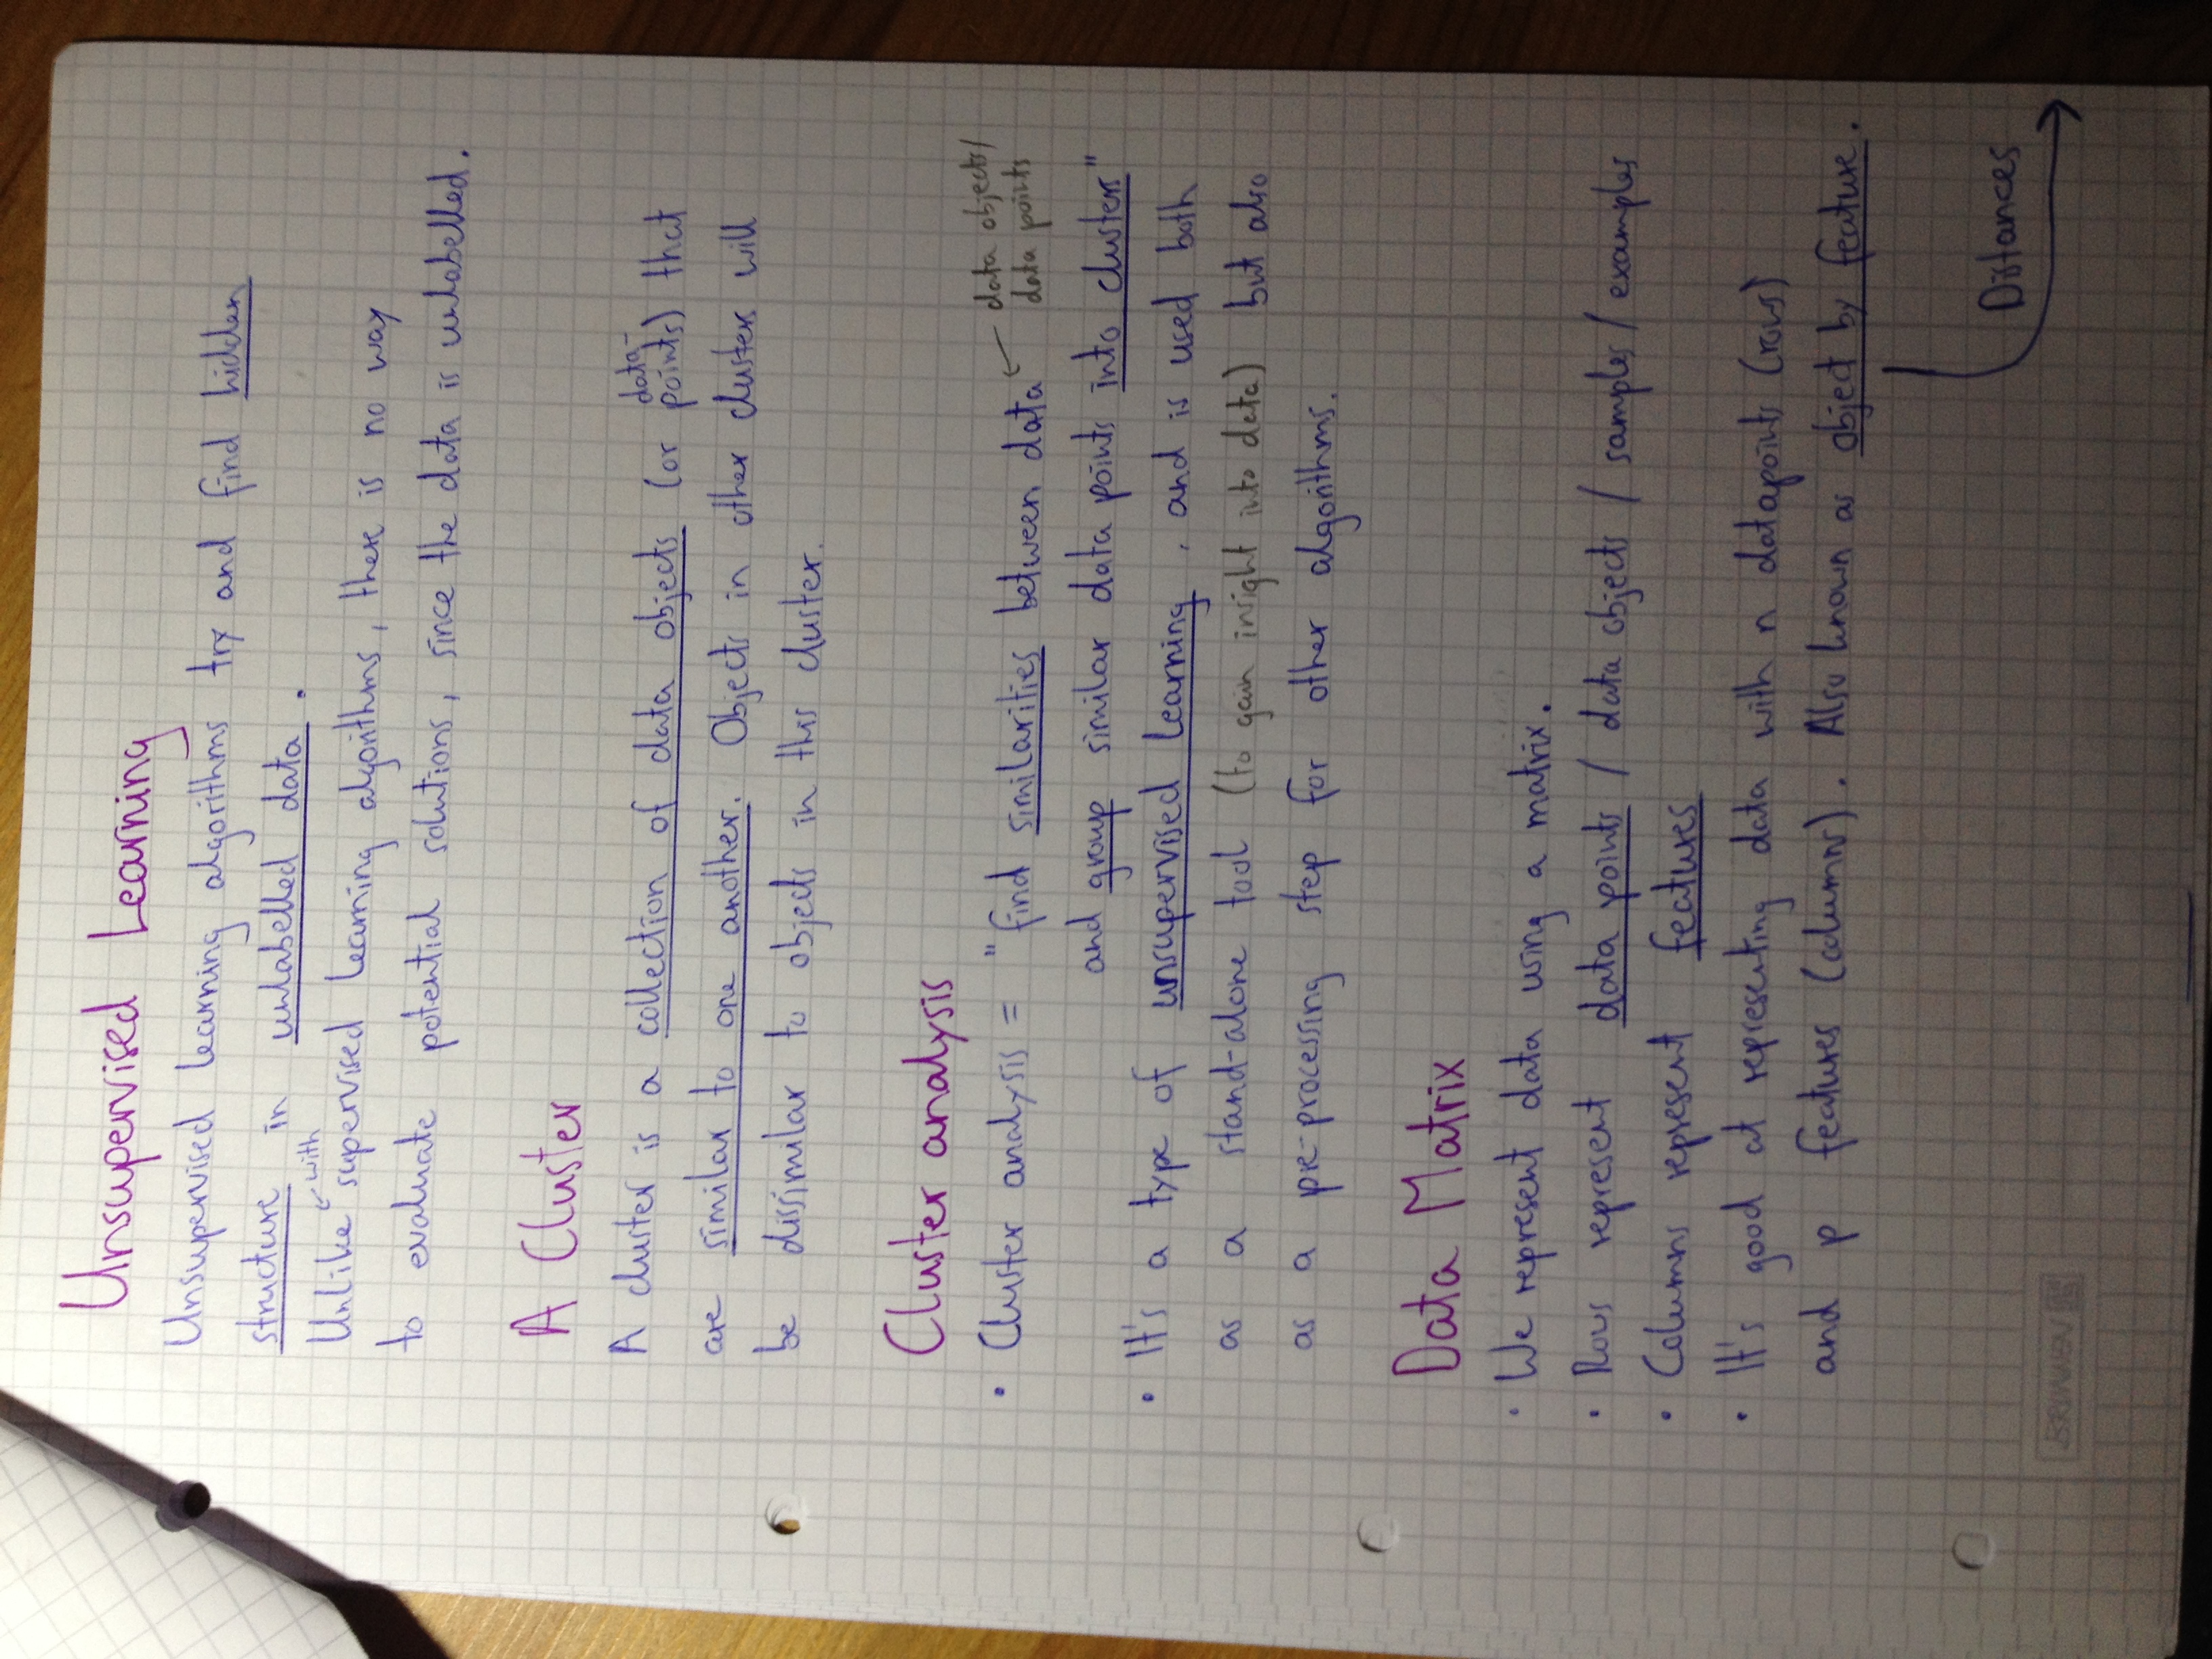 Unsupervised Learning
Unsupervised learning algorithms try and find hidden
structure in unlabelled data.
with
Unlike supervised learning algorithms, there is no way
to evaluate potential solutions, since the data is unlabelled.
A Cluster
A cluster is a collection of data objects (or data-
points) that
are similar to one another. Objects in other clusters will
be dissimilar to objects in this cluster.
Cluster analysis
• Cluster analysis = "find similarities between data
data objects/
data points
and group similar data points into clusters"
• It's a type of unsupervised learning, and is used both
as a stand-alone tool (to gain insight into data) but also
as a pre-processing step for other algorithms.
Data Matrix
• We represent data using a matrix.
• Rows represent data points / data objects / samples / examples
• Columns represent features
• It's good at representing data with n datapoints (rows)
and p features (columns). Also known as object by feature.
Distances
BRUNNEN